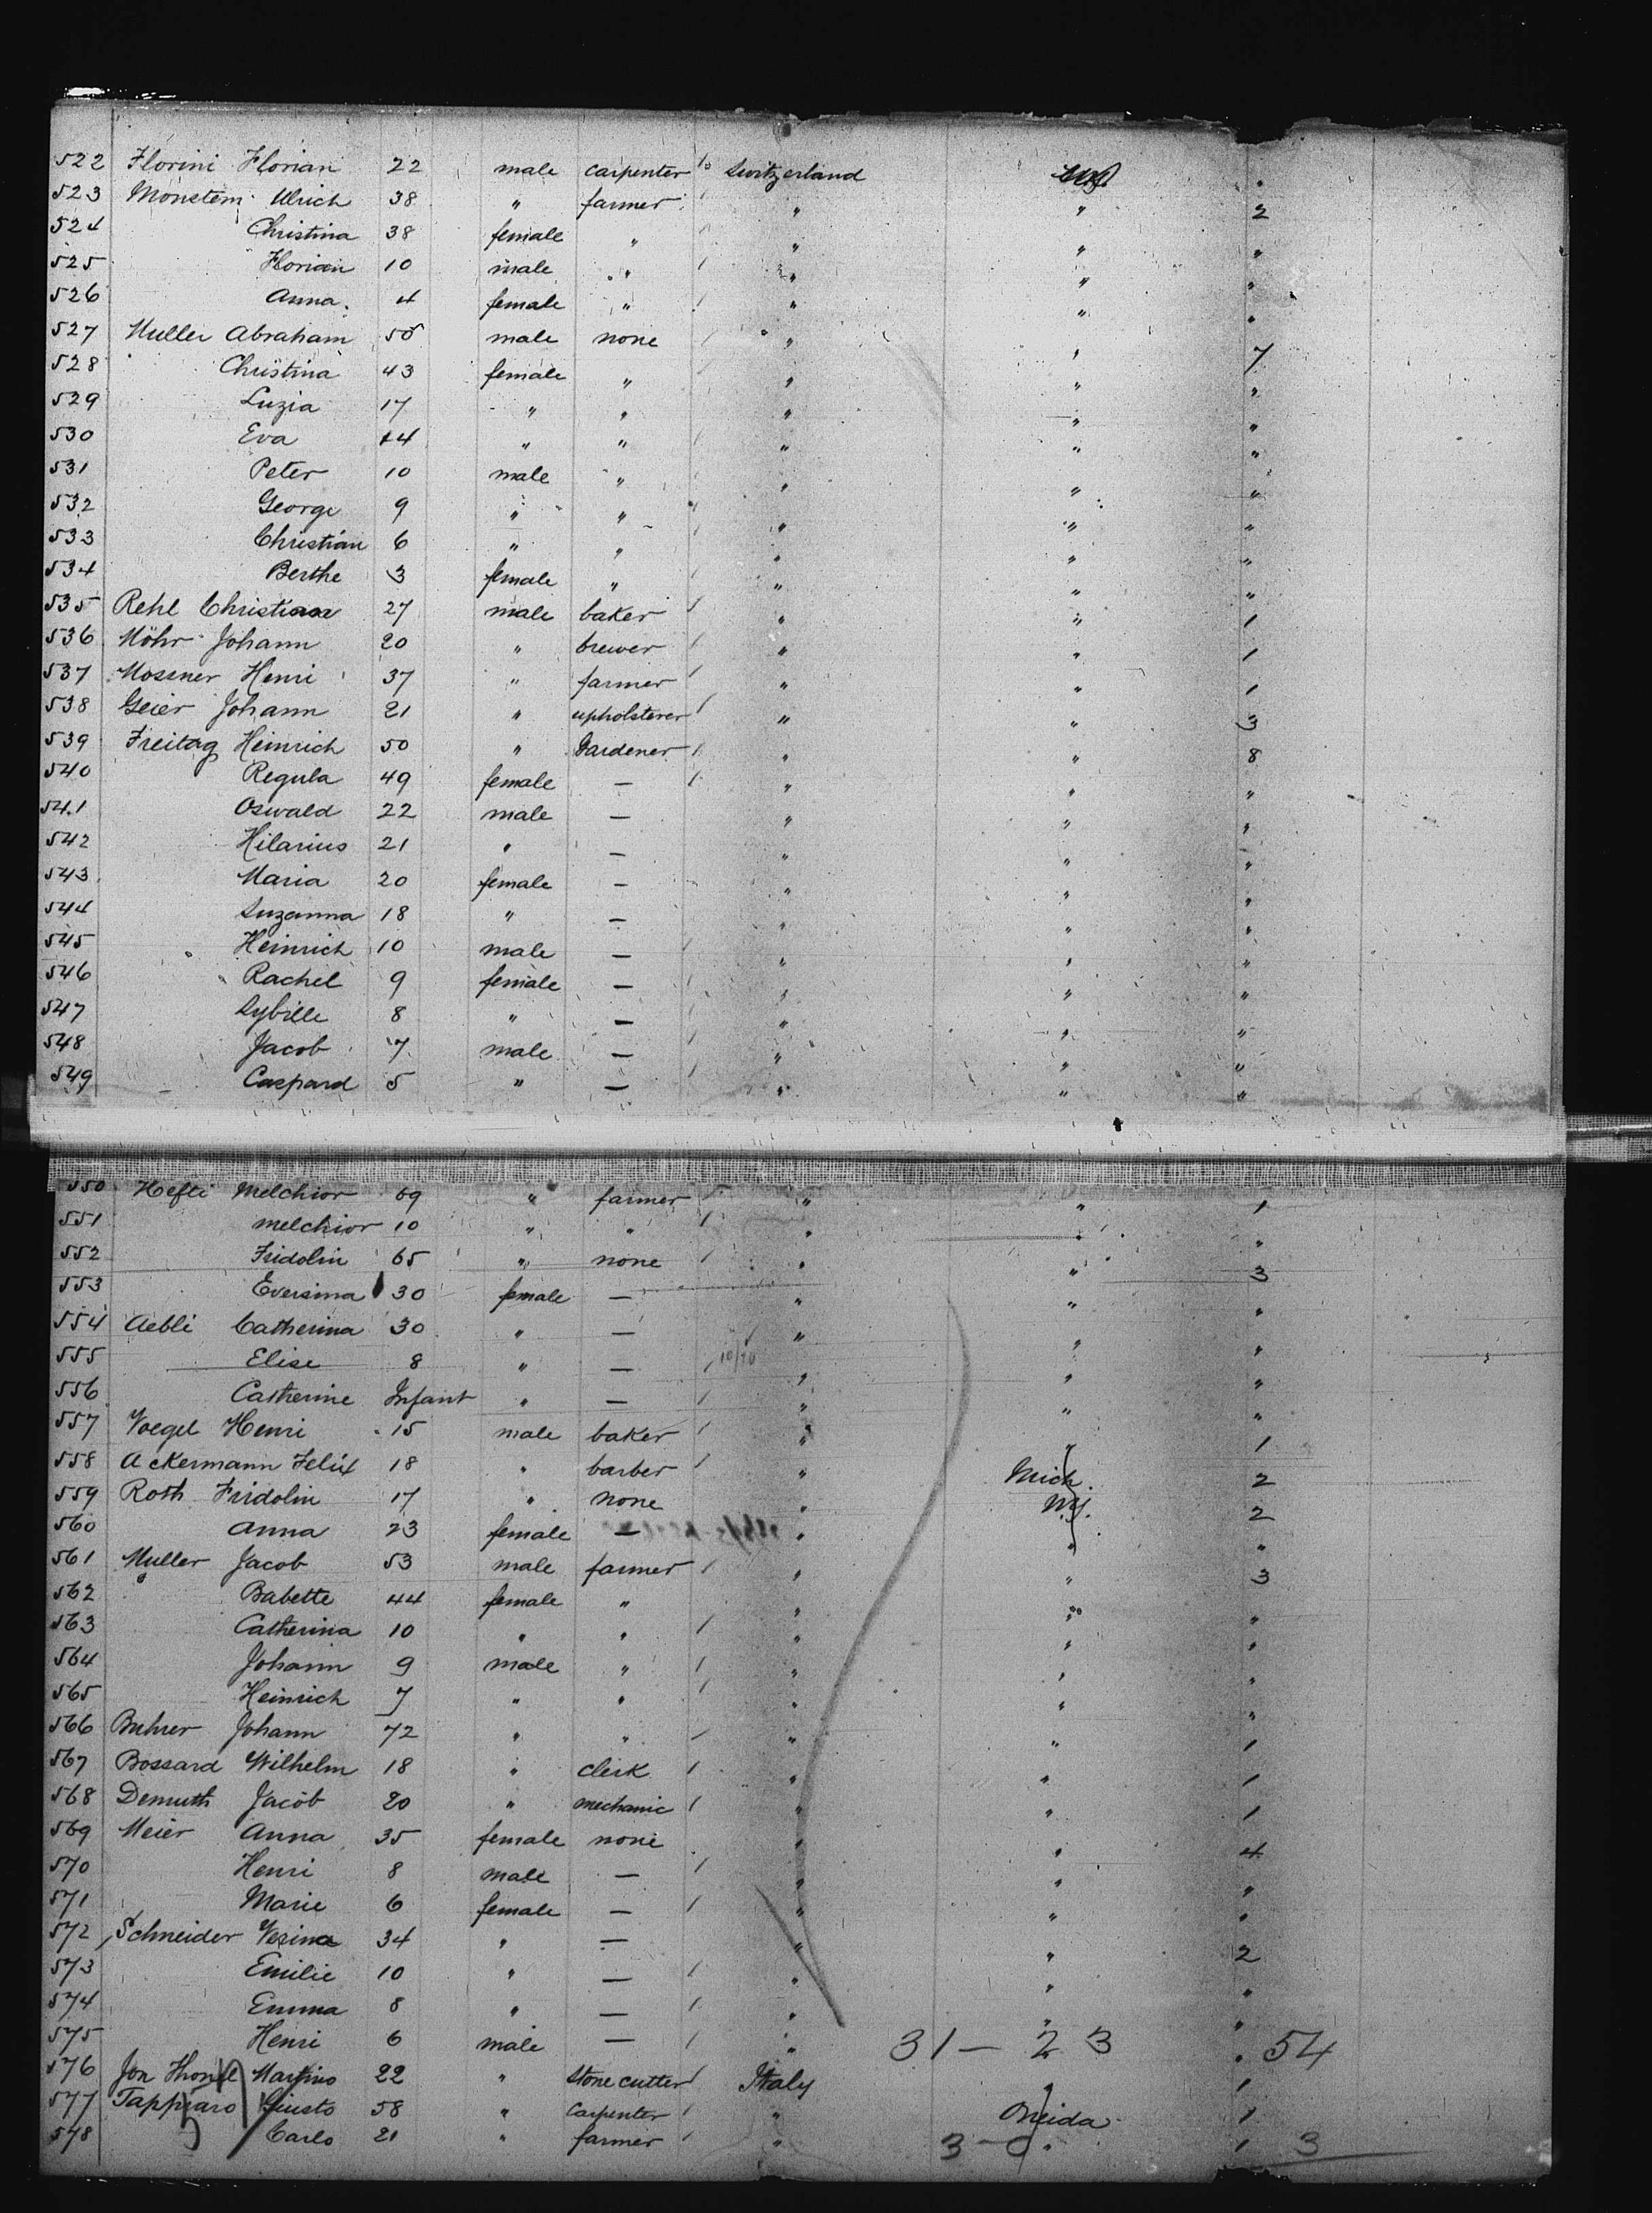 522 Florini Florian 22 male carpenter 1 Switzerland
523 Monstein Ulrich 38 " farmer 1 " " 2
524 Christina 38 female " 1 " " "
525 Florian 10 male " 1 " " "
526 Anna 4 female " 1 " " "
527 Muller Abraham 50 male none 1 " " 7
528 Christina 43 female " 1 " " "
529 Luzia 17 " " " " "
530 Eva 14 " " 1 " " "
531 Peter 10 male " " " "
532 George 9 " " 1 " " "
533 Christian 6 " " 1 " " "
534 Berthe 3 female " 1 " " "
535 Rehl Christian 27 male baker 1 " " 1
536 Möhr Johann 20 " brewer 1 " " 1
537 Mossner Henri 37 " farmer 1 " " 1
538 Geier Johann 21 " upholsterer 1 " " 3
539 Freitag Heinrich 50 " Gardener 1 " " 8
540 Regula 49 female — 1 " " "
541 Oswald 22 male — " " "
542 Hilarius 21 " — " " "
543 Maria 20 female — " " "
544 Suzanna 18 " — " " "
545 Heinrich 10 male — 1 " " "
546 Rachel 9 female — 1 " " "
547 Sybille 8 " — 1 " " "
548 Jacob 7 male — 1 " " "
549 Caspard 5 " — 1 " " "
550 Hefti Melchior 69 " farmer 1 " " 1
551 Melchior 10 " " 1 " " "
552 Fridolin 65 " none 1 " " 3
553 Eversina 30 female — " " "
554 Aebli Catherina 30 " — 1 " " "
555 Elise 8 " — 1 10/70 " " "
556 Catherine Infant " — 1 " " "
557 Voegel Henri 15 male baker 1 " " 1
558 Ackermann Felix 18 " barber 1 " Mich. 2
559 Roth Fridolin 17 " none " N.Y. 2
560 Anna 23 female — " " "
561 Muller Jacob 53 male farmer 1 " " 3
562 Babette 44 female " " " "
563 Catherina 10 " " 1 " " "
564 Johann 9 male " 1 " " "
565 Heinrich 7 " " 1 " " "
566 Buhrer Johann 72 " " 1 " " 1
567 Bossard Wilhelm 18 " clerk 1 " " 1
568 Demuth Jacob 20 " mechanic 1 " " 1
569 Meier Anna 35 female none " " 4
570 Henri 8 male — 1 " " "
571 Marie 6 female — 1 " " "
572 Schneider Vesina 34 " — " " 2
573 Emilie 10 " — 1 " " "
574 Emma 8 " — 1 " " "
575 Henri 6 male — 1 " 31 — 23 " 54
576 Jon Martino 22 " Stone cutter 1 Italy " 1
577 Tapparo Giusto 58 " Carpenter 1 " Oneida 1
548 Carlo 21 " farmer 1 " 3 — 0 " 1 3